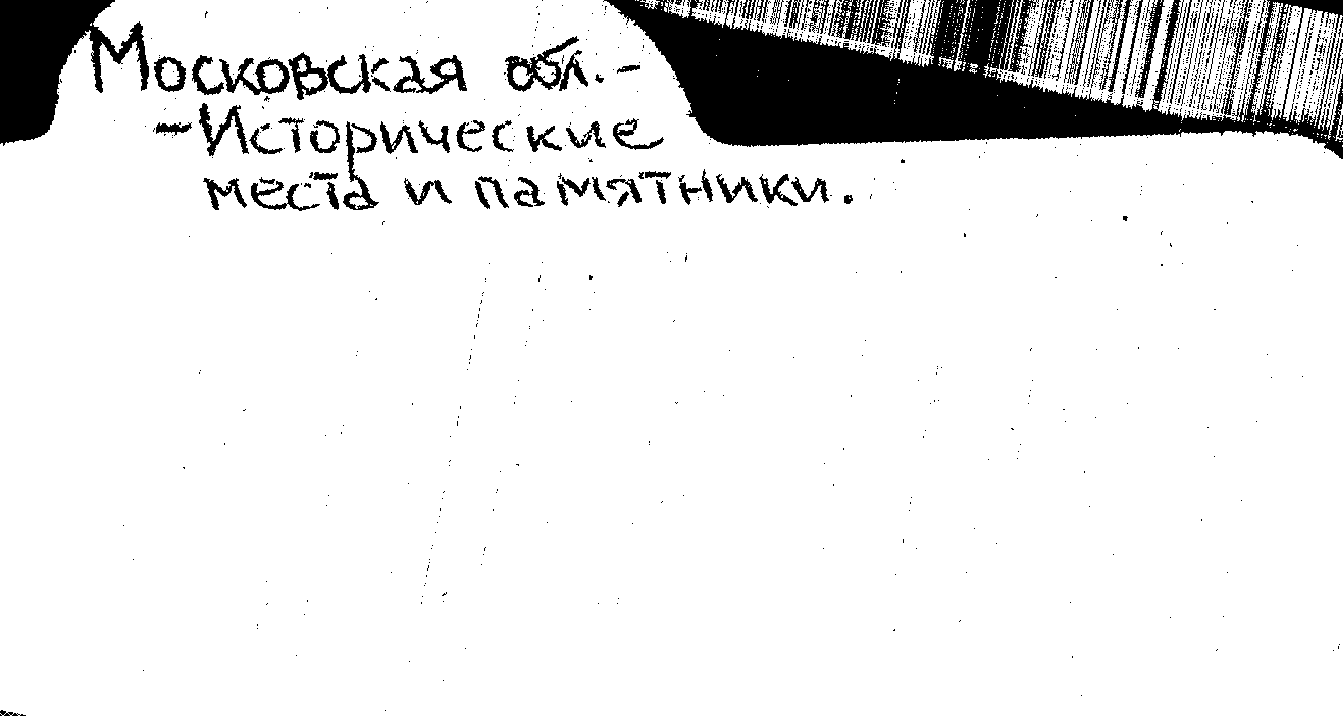 Московская обл.-
-Исторические
места и памятники.